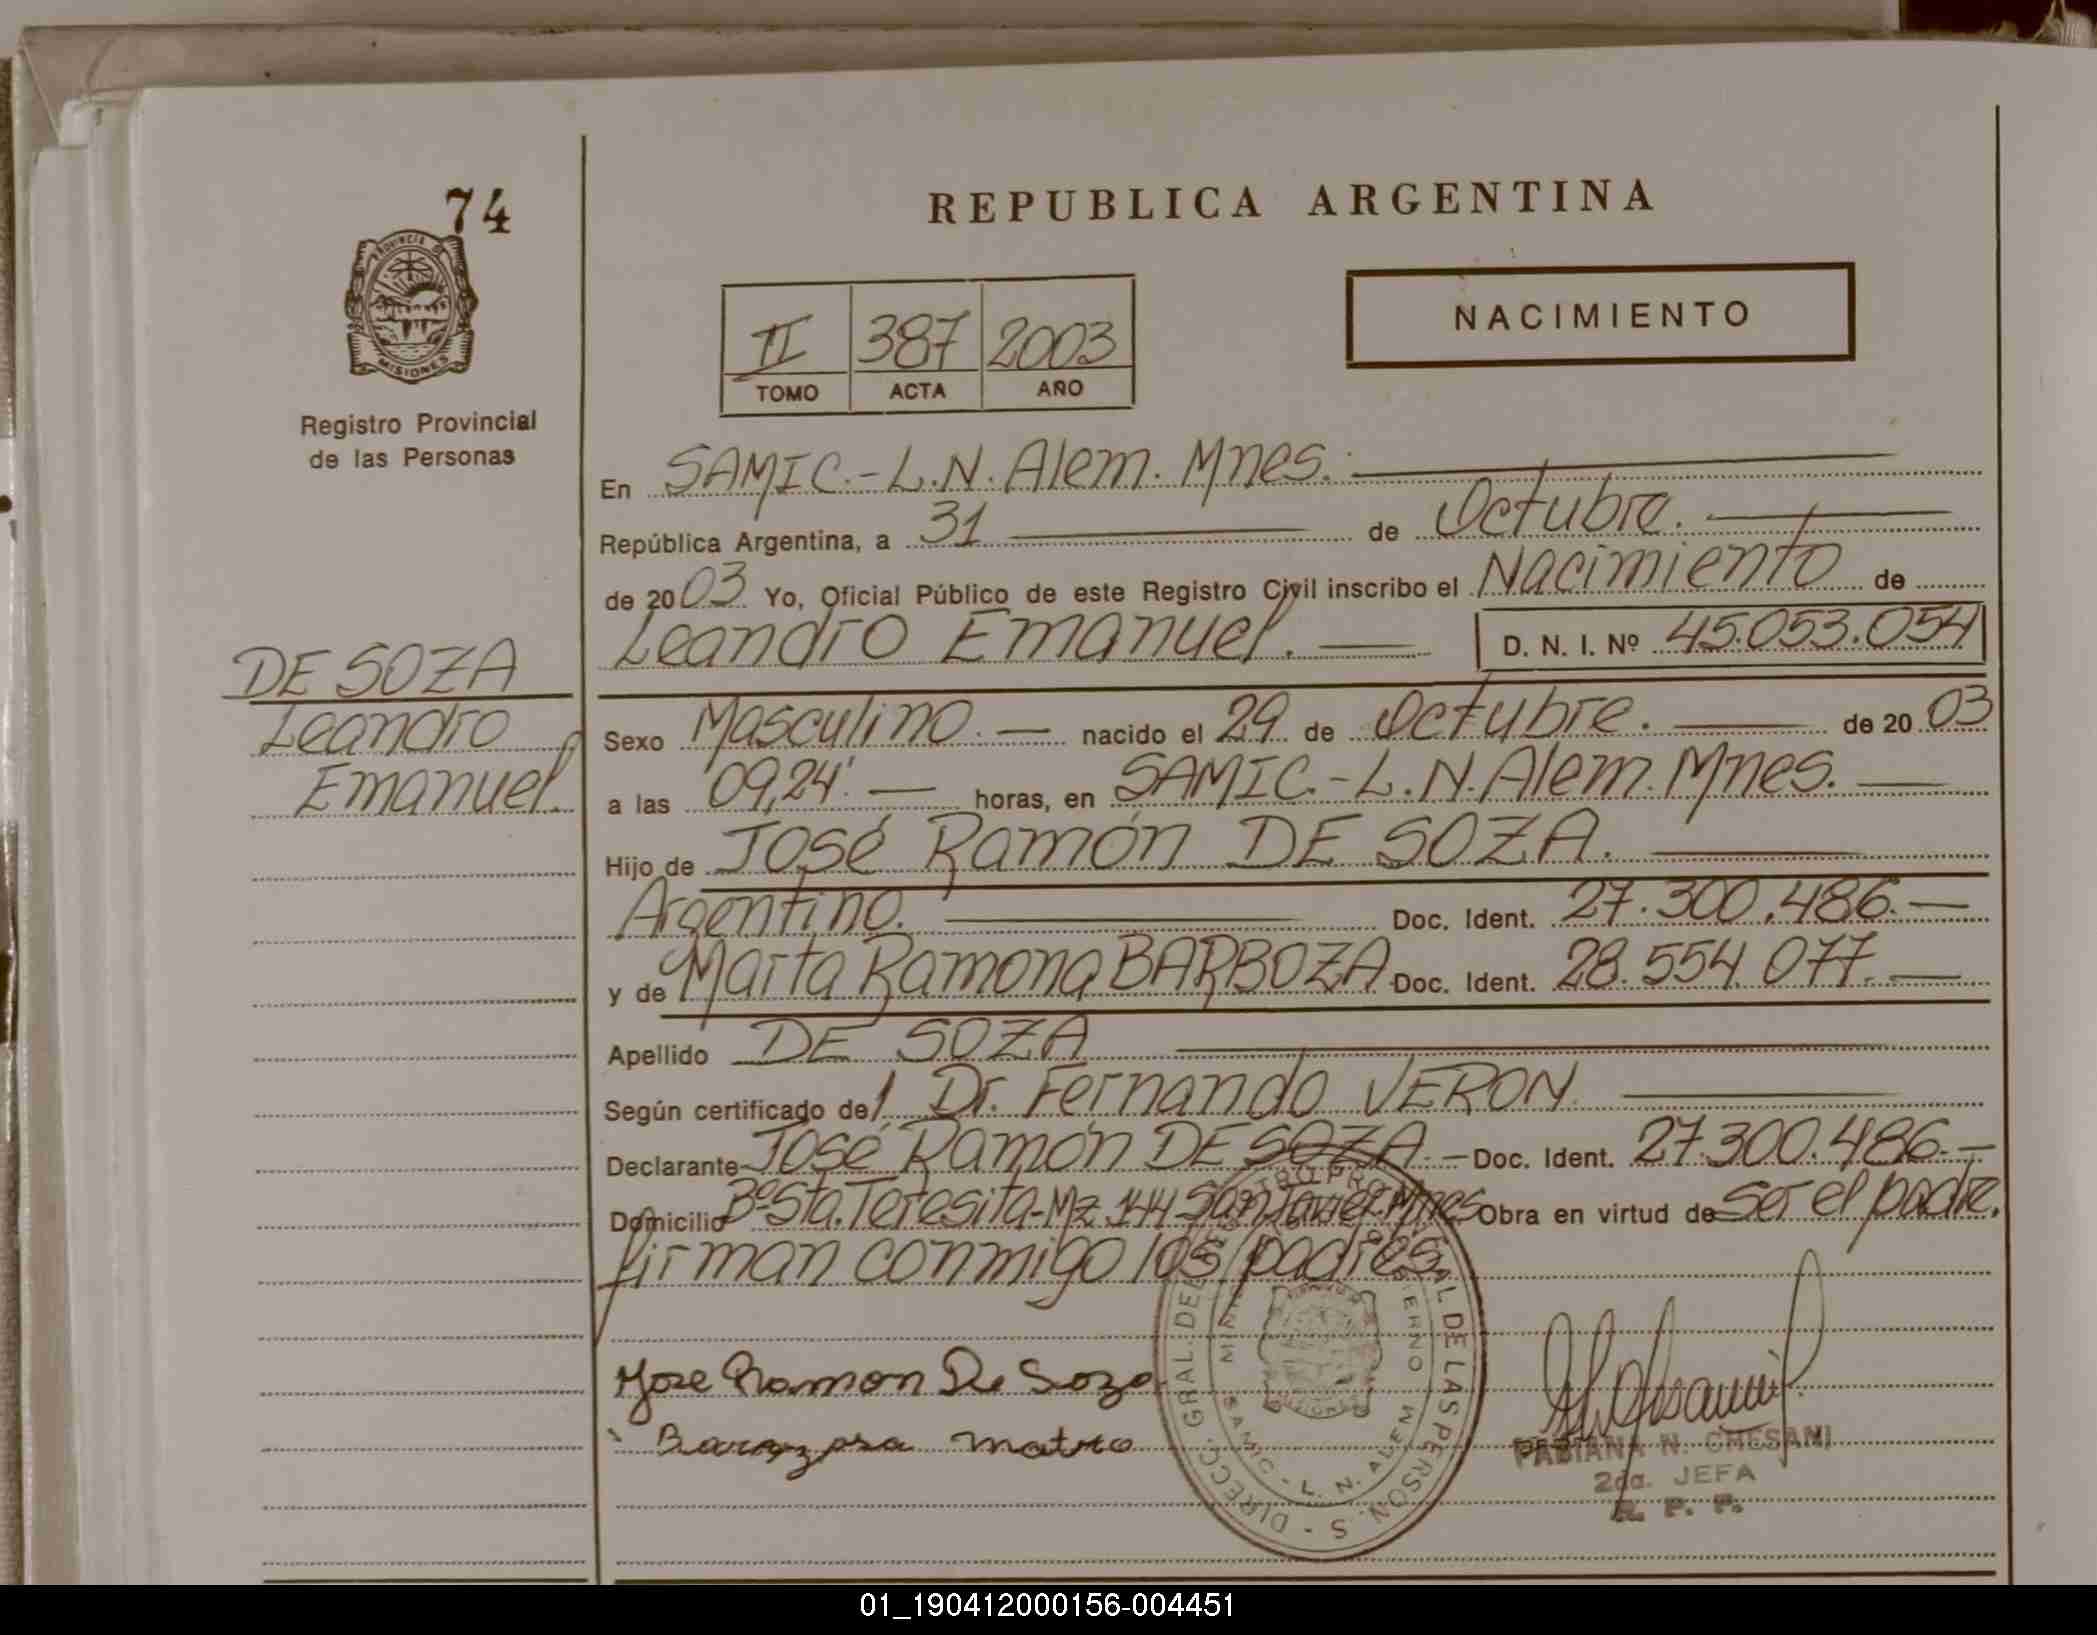 74
REPUBLICA ARGENTINA
PROVINCIA DE
MISIONES
NACIMIENTO
II 387 2003
TOMO ACTA AÑO
Registro Provincial
de las Personas
En SAMIC.-L.N.Alem.Mnes.
República Argentina, a 31 de Octubre.
de 2003 Yo, Oficial Público de este Registro Civil inscribo el Nacimiento de
Leandro Emanuel. D. N. I. Nº 45.053.054
DE SOZA
Leandro
Emanuel.
Sexo Masculino. nacido el 29 de Octubre. de 2003
a las 09,24'. horas, en SAMIC.-L.N.Alem.Mnes.
Hijo de José Ramón DE SOZA.
Argentino. Doc. Ident. 27.300.486.-
y de Marta Ramona BARBOZA Doc. Ident. 28.554.077.-
Apellido DE SOZA
Según certificado del Dr. Fernando VERON
Declarante José Ramón DE SOZA.- Doc. Ident. 27.300.486.-
Domicilio Bº Sta. Teresita-Mz 144 San Javier Mnes Obra en virtud de ser el padre.
firman conmigo los padres
Jose Ramon De Soza
DIRECC. GRAL. DEL REGISTRO PROVINCIAL DE LAS PERSONAS
SAMIC - L. N. ALEM
FABIANA N. CHESANI
2da. JEFA
R. P. P.
01_190412000156-004451